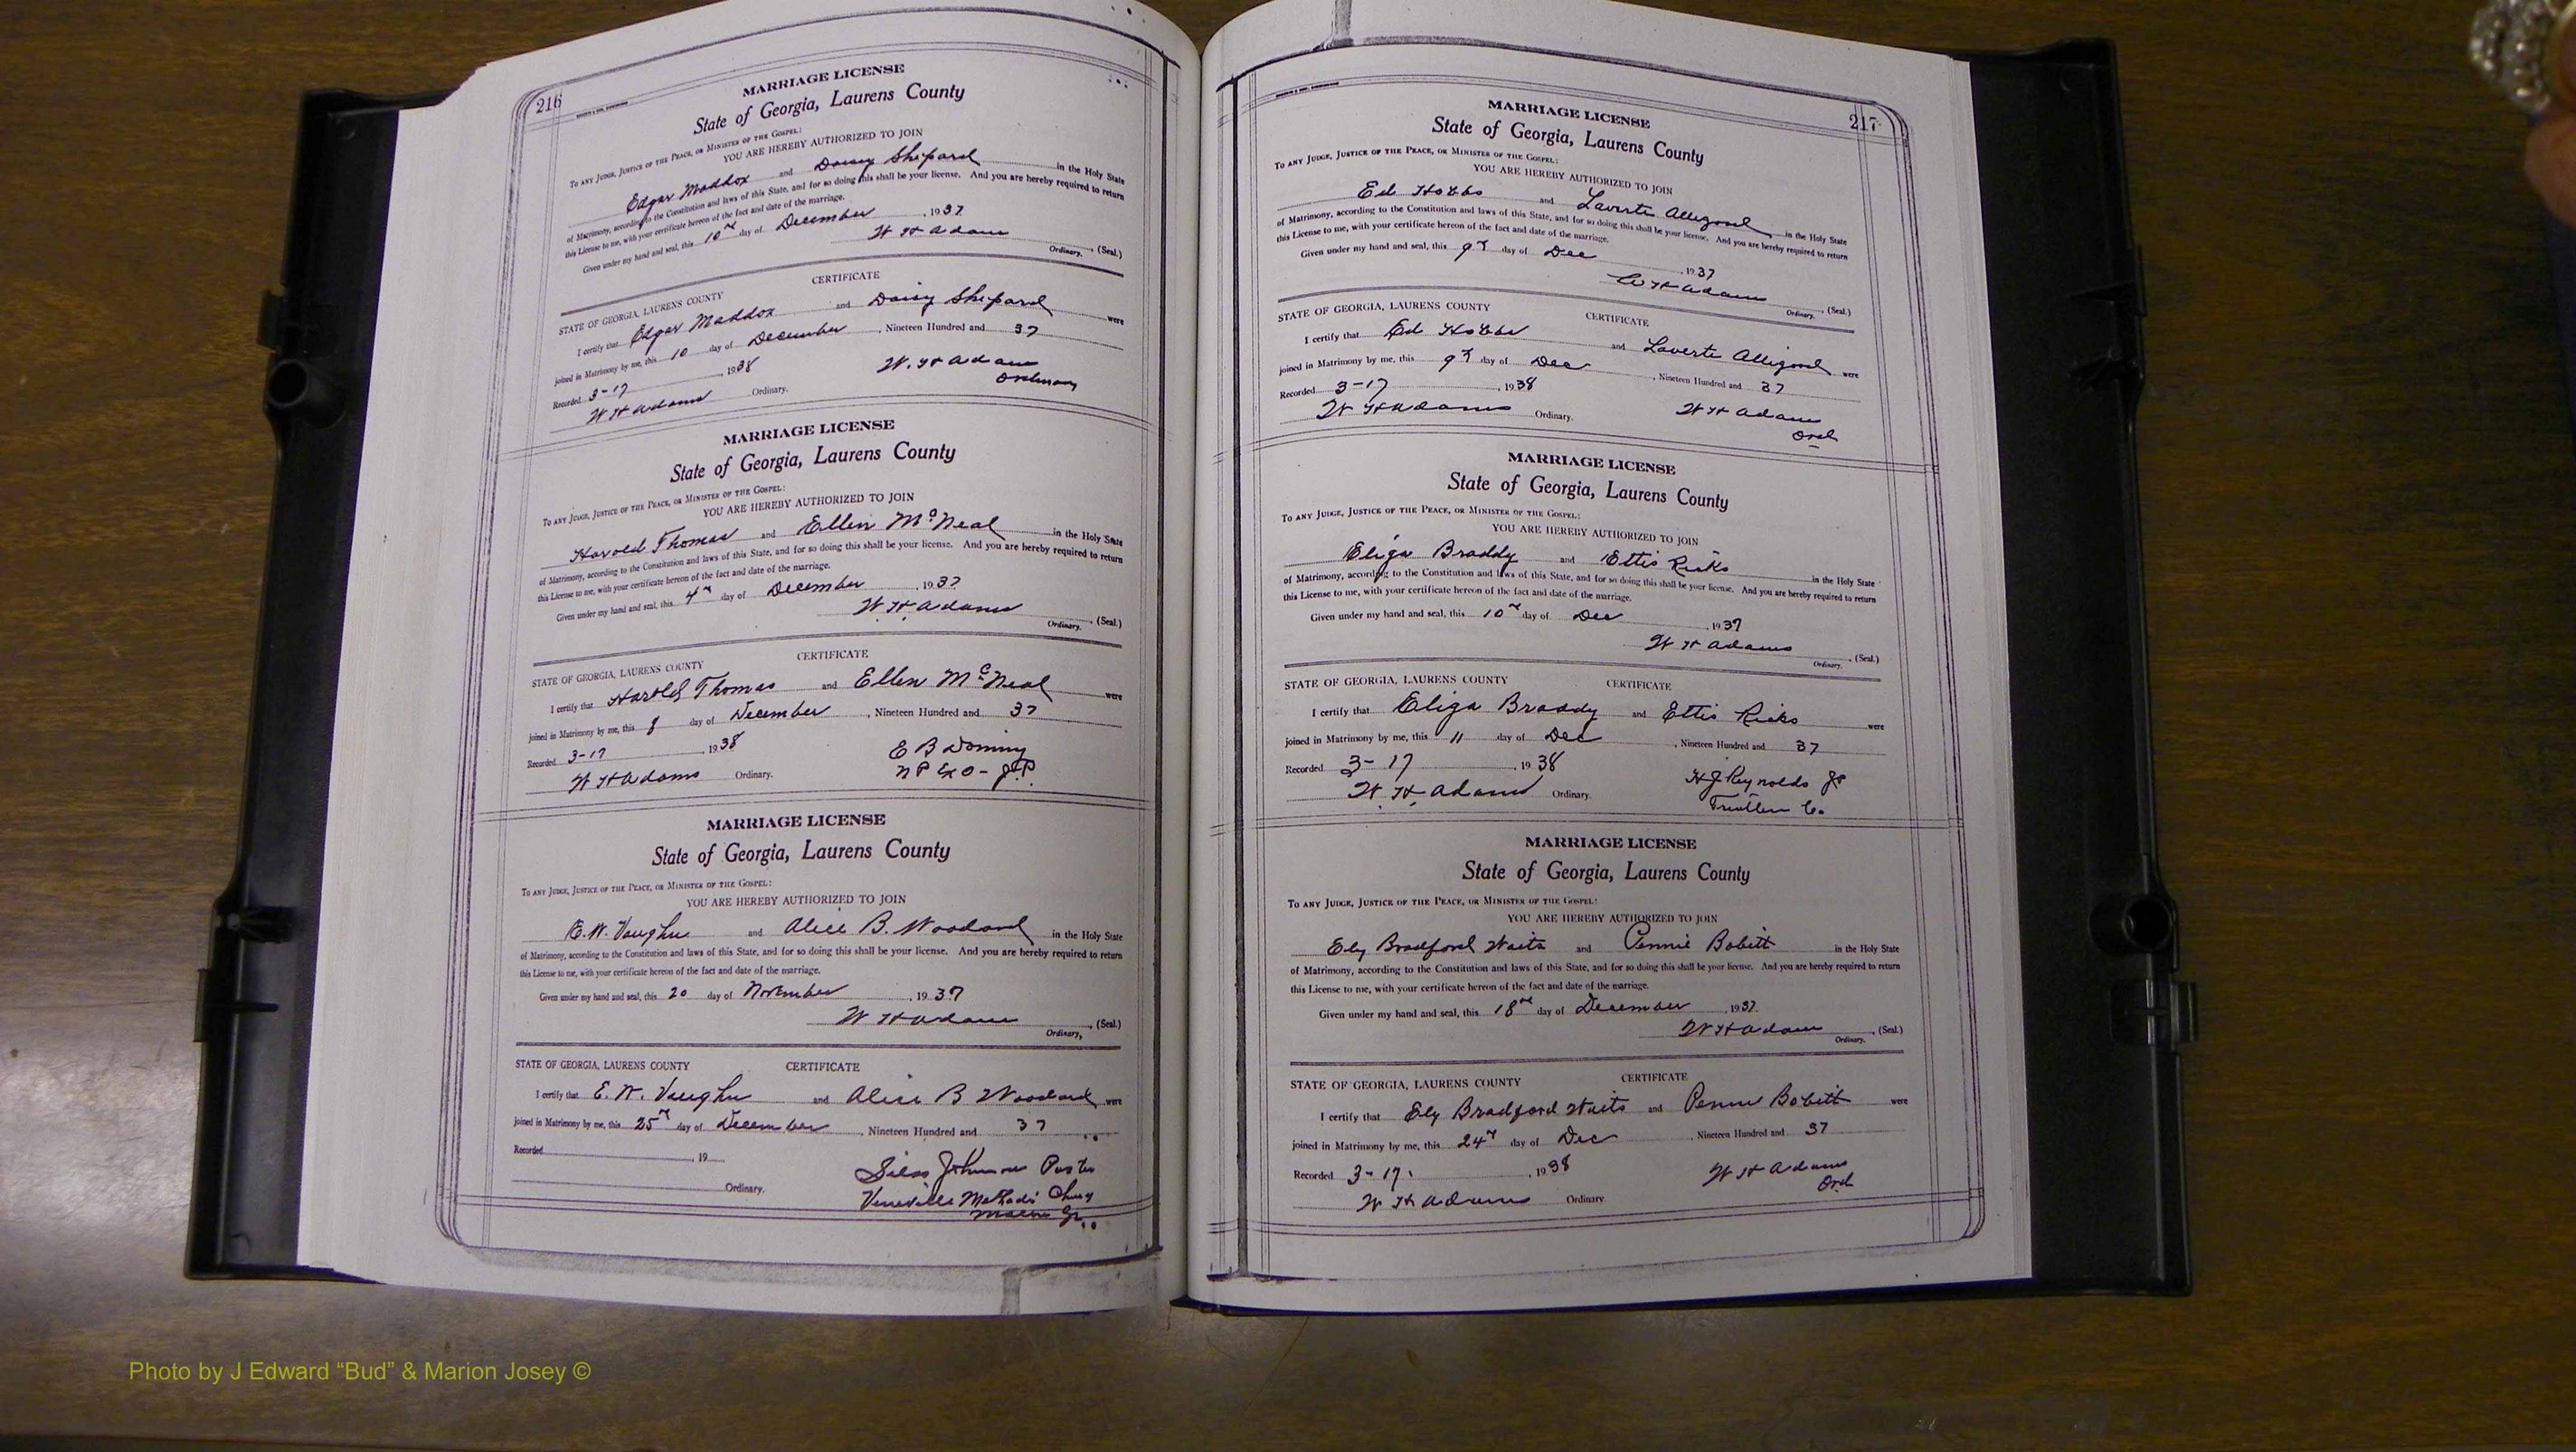 216
MARRIAGE LICENSE
State of Georgia, Laurens County
To any Judge, Justice of the Peace, or Minister of the Gospel:
YOU ARE HEREBY AUTHORIZED TO JOIN
Edgar Maddox and Daisy Shepard in the Holy State
of Matrimony, according to the Constitution and laws of this State, and for so doing this shall be your license. And you are hereby required to return
this License to me, with your certificate hereon of the fact and date of the marriage.
Given under my hand and seal, this 10th day of December, 1937
W H Adams, (Seal.)
Ordinary.
CERTIFICATE
STATE OF GEORGIA, LAURENS COUNTY
I certify that Edgar Maddox and Daisy Shepard were
joined in Matrimony by me, this 10 day of December, Nineteen Hundred and 37
Recorded 3-17, 1938 W. H Adams
W H Adams Ordinary. Ordinary
MARRIAGE LICENSE
State of Georgia, Laurens County
To any Judge, Justice of the Peace, or Minister of the Gospel:
YOU ARE HEREBY AUTHORIZED TO JOIN
Harold Thomas and Ellen McNeal in the Holy State
of Matrimony, according to the Constitution and laws of this State, and for so doing this shall be your license. And you are hereby required to return
this License to me, with your certificate hereon of the fact and date of the marriage.
Given under my hand and seal, this 4th day of December, 1937
W. H. Adams, (Seal.)
Ordinary.
CERTIFICATE
STATE OF GEORGIA, LAURENS COUNTY
I certify that Harold Thomas and Ellen McNeal were
joined in Matrimony by me, this day of December, Nineteen Hundred and 37
Recorded 3-17, 1938 E B Dominy
W H Adams Ordinary. N P Ex O - J.P.
MARRIAGE LICENSE
State of Georgia, Laurens County
To any Judge, Justice of the Peace, or Minister of the Gospel:
YOU ARE HEREBY AUTHORIZED TO JOIN
E. W. Vaughn and Alice B. Woodard in the Holy State
of Matrimony, according to the Constitution and laws of this State, and for so doing this shall be your license. And you are hereby required to return
this License to me, with your certificate hereon of the fact and date of the marriage.
Given under my hand and seal, this 20 day of November, 1937
W H Adams, (Seal.)
Ordinary,
STATE OF GEORGIA, LAURENS COUNTY CERTIFICATE
I certify that E. W. Vaughn and Alice B Woodard were
joined in Matrimony by me, this 25th day of December, Nineteen Hundred and 37
Recorded, 19
Silas Johnson Pastor
Ordinary. Vineville
Macon Ga.
217
MARRIAGE LICENSE
State of Georgia, Laurens County
To any Judge, Justice of the Peace, or Minister of the Gospel:
YOU ARE HEREBY AUTHORIZED TO JOIN
Ed Hobbs and Laverte Alligood in the Holy State
of Matrimony, according to the Constitution and laws of this State, and for so doing this shall be your license. And you are hereby required to return
this License to me, with your certificate hereon of the fact and date of the marriage.
Given under my hand and seal, this 9th day of Dec, 1937
W H Adams, (Seal.)
Ordinary.
STATE OF GEORGIA, LAURENS COUNTY CERTIFICATE
I certify that Ed Hobbs and Laverte Alligood were
joined in Matrimony by me, this 9th day of Dec, Nineteen Hundred and 37
Recorded 3-17, 1938 W H Adams
W H Adams Ordinary. Ord
MARRIAGE LICENSE
State of Georgia, Laurens County
To any Judge, Justice of the Peace, or Minister of the Gospel:
YOU ARE HEREBY AUTHORIZED TO JOIN
Eliga Braddy and Ettis Ricks in the Holy State
of Matrimony, according to the Constitution and laws of this State, and for so doing this shall be your license. And you are hereby required to return
this License to me, with your certificate hereon of the fact and date of the marriage.
Given under my hand and seal, this 10th day of Dec, 1937
W H Adams, (Seal.)
Ordinary.
STATE OF GEORGIA, LAURENS COUNTY CERTIFICATE
I certify that Eliga Braddy and Ettis Ricks were
joined in Matrimony by me, this 11 day of Dec, Nineteen Hundred and 37
Recorded 3-17, 1938 H J Reynolds JP
W. H. Adams Ordinary. Treutlen Co.
MARRIAGE LICENSE
State of Georgia, Laurens County
To any Judge, Justice of the Peace, or Minister of the Gospel:
YOU ARE HEREBY AUTHORIZED TO JOIN
Ely Bradford Waits and Pennie Bobitt in the Holy State
of Matrimony, according to the Constitution and laws of this State, and for so doing this shall be your license. And you are hereby required to return
this License to me, with your certificate hereon of the fact and date of the marriage.
Given under my hand and seal, this 18th day of December, 1937.
W H Adams, (Seal.)
Ordinary.
STATE OF GEORGIA, LAURENS COUNTY CERTIFICATE
I certify that Ely Bradford Waits and Pennie Bobitt were
joined in Matrimony by me, this 24th day of Dec, Nineteen Hundred and 37
Recorded 3-17, 1938 W H Adams
W H Adams Ordinary. Ord
Photo by J Edward “Bud” & Marion Josey ©